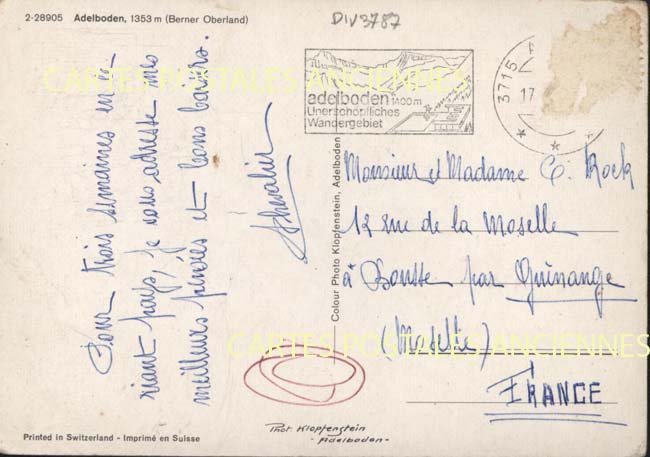 2-28905 Adelboden, 1353 m (Berner Oberland)
DIV3787
adelboden 1400 m
Unerschöpfliches
Wandergebiet
3715
17
CARTES POSTALES ANCIENNES
Pour trois semaines en ce
riant pays, je vous adresse mes
meilleures pensées et bons baisers.
Chevalier
Colour Photo Klopfenstein, Adelboden
Monsieur et Madame C. Rock
12 rue de la Moselle
à Bousse par Guénange
(Moselle)
CARTES POSTALES ANCIENNES
FRANCE
Phot. Klopfenstein
- Adelboden -
Printed in Switzerland - Imprimé en Suisse